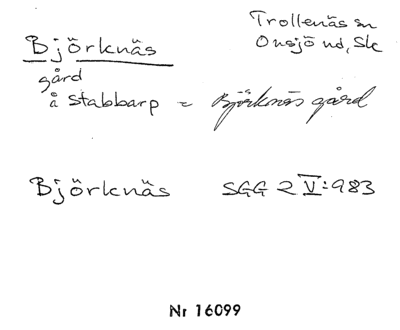 Björknäs
Trollenäs sn
Onsjö hd, Sk
gård
å Stabbarp = Björknäs gård
Björknäs SGG 2 V:983
Nr 16099